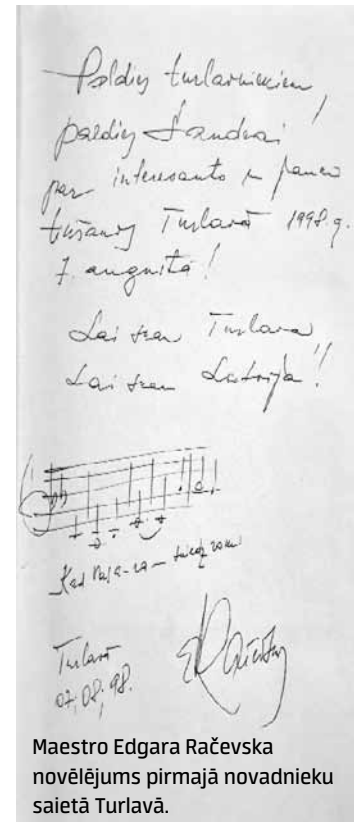 Paldies turlavniekiem,
paldies Sandrai
par interesanto
Turlavā 1998.g.
7. augustā!
Lai skan Turlava,
Lai skan Latvija!!
Kad
Turlavā
07,08,98.
Maestro Edgara Račevska
novēlējums pirmajā novadnieku
saietā Turlavā.